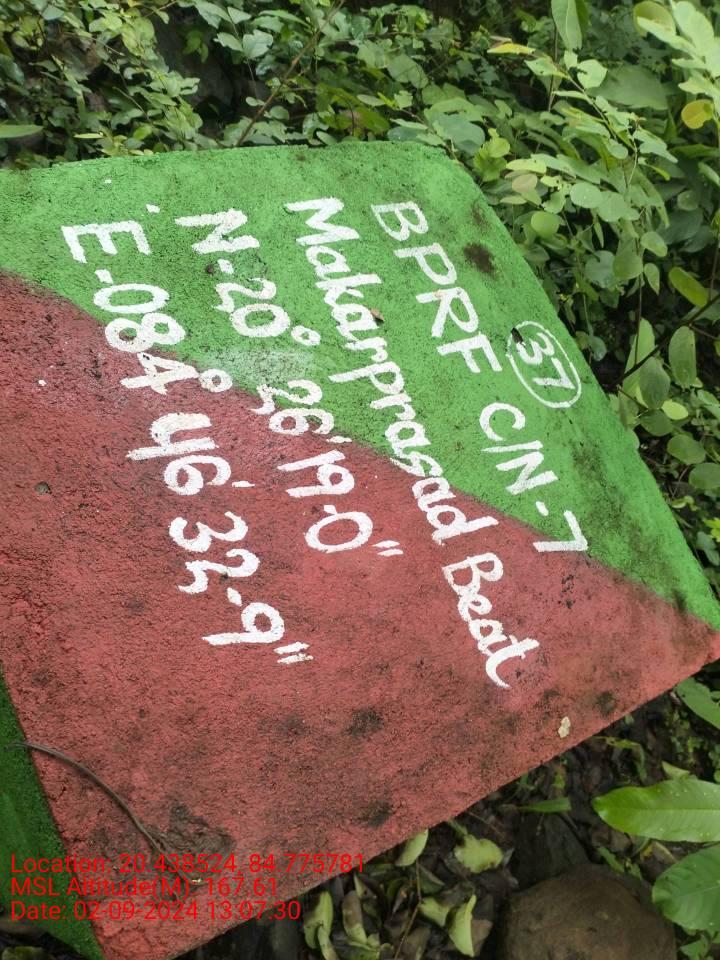 37
BPRF C/N-7
Makarprasad Beat
N-20° 26' 19-0"
E-084° 46' 32-9"
Location: 20.438524, 84.775781
MSL Altitude(M): 167.61
Date: 02-09-2024 13:07:30